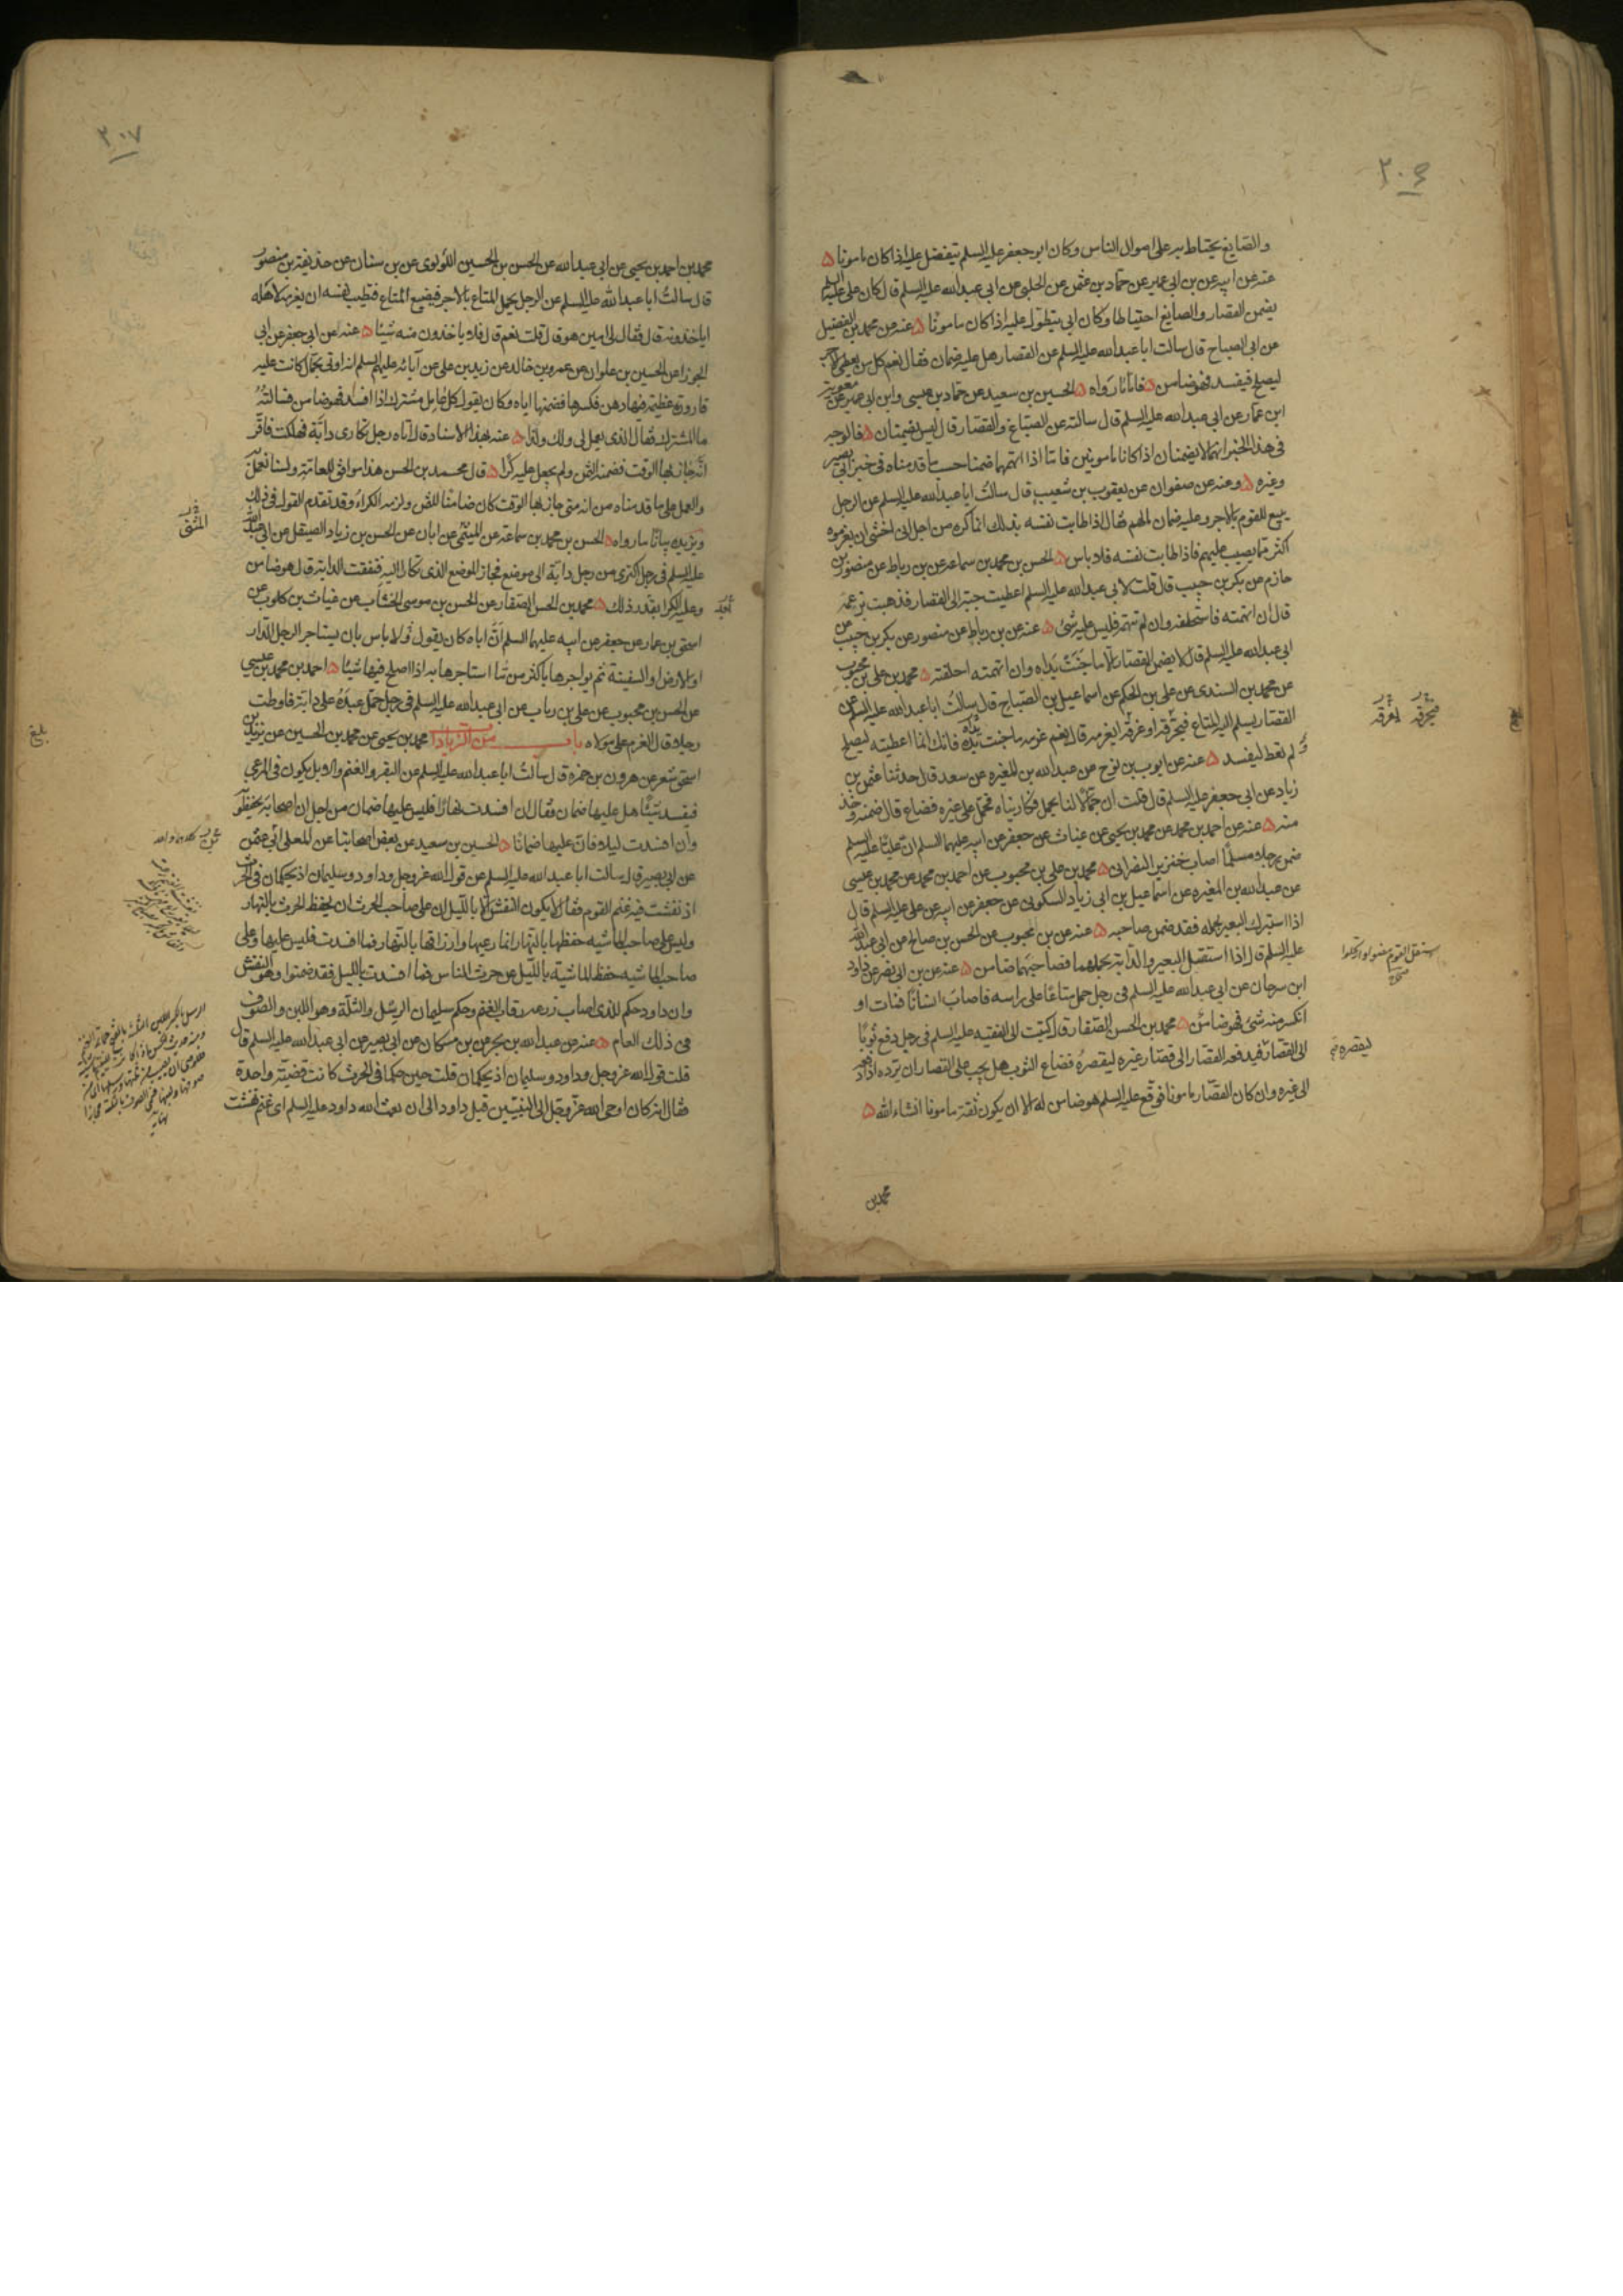 ٣٠٦
والصايغ يحتاط به على اموال الناس وكان ابو جعفر عليه السلم يتفضل عليه اذا كان مامونا ۵
عنه عن ابيه عن بن ابى عمير عن حماد بن عثمن عن الحلبى عن ابى عبد الله عليه السلم قال كان على عليه السلم
يضمن القصار والصايغ احتياطا وكان ابى يتطول عليه اذا كان مامونا ۵ عنه عن محمد بن الفضيل
عن ابى الصباح قال سالت ابا عبد الله عليه السلم عن القصار هل عليه ضمان فقال نعم كل من يعطى الاجر
ليصلح فيفسد فهو ضامن ۵ فاما ما رواه ۵ الحسين بن سعيد عن حماد بن عيسى وابن ابى عمير عن معوية
ابن عمار عن ابى عبد الله عليه السلم قال سالته عن الصباغ والقصار قال ليس يضمنان ۵ فالوجه
فى هذا الخبر انهما لا يضمنان اذا كانا مامونين فاما اذا اتهمهما ضمنا حسب ما قدمناه فى خبر ابى بصير
وغيره ۵ وعنه عن صفوان عن يعقوب بن شعيب قال سالت ابا عبد الله عليه السلم عن الرجل
يبيع للقوم بالاجر وعليه ضمان مالهم فقال اذا طابت نفسه بذلك انما اكره من اجل انى اخشى ان يغرموه
اكثر مما يصيب عليهم فاذا طابت نفسه فلا باس ۵ الحسن بن محمد بن سماعه عن بن رباط عن منصور بن
حازم عن بكر بن حبيب قال قلت لابى عبد الله عليه السلم اعطيت جبة الى القصار فذهبت بزعمه
قال ان اتهمته فاستحلفه وان لم تتهمه فليس عليه شئ ۵ عنه عن بن رباط عن منصور عن بكر بن حبيب عن
ابى عبد الله عليه السلم قال لا يضمن القصار الا ما جنت يداه وان اتهمته احلفته ۵ محمد بن على بن محبوب
عن محمد بن السندى عن على بن الحكم عن اسماعيل بن الصباح قال سالت ابا عبد الله عليه السلم عن
القصار يسلم اليه المتاع فيحرقه او غرقه ايغرمه قال نعم غرمه ما جنت يداه فانك انما اعطيته ليصلح
ولم تعط ليفسد ۵ عنه عن ايوب بن نوح عن عبد الله بن المغيره عن سعد قال حدثنا عثمن بن
زياد عن ابى جعفر عليه السلم قال قلت ان جمالا لنا يحمل فكاريناه فحمل على غيره فضاع قال ضمنه وخذ
منه ۵ عنه عن احمد بن محمد عن محمد بن يحيى عن غياث عن جعفر عن ابيه عليهما السلم ان عليا عليه السلم
ضمن رجلا مسلما اصاب خنزير النصرانى ۵ محمد بن على بن محبوب عن احمد بن محمد عن محمد بن عيسى
عن عبد الله بن المغيره عن اسماعيل بن ابى زياد السكونى عن جعفر عن ابيه عن على عليه السلم قال
اذا استبرك البعير بحمله فقد ضمن صاحبه ۵ عنه عن بن محبوب عن الحسن بن صالح عن ابى عبد الله
عليه السلم قال اذا استقل البعير والدابة بحملهما فصاحبهما ضامن ۵ عنه عن بن ابى نصر عن داود
ابن سرحان عن ابى عبد الله عليه السلم فى رجل حمل متاعا على راسه فاصاب انسانا فمات او
انكسر منه شئ فهو ضامن ۵ محمد بن الحسن الصفار قال كتبت الى الفقيه عليه السلم فى رجل دفع ثوبا
الى القصار فدفعه القصار الى قصار غيره ليقصره فضاع الثوب هل يجب على القصار ان يرده اذا دفعه
الى غيره وان كان القصار مامونا فوقع عليه السلم هو ضامن له الا ان يكون ثقة مامونا انشاء الله ۵
محمد بن
فيحرقه
ليقصره
٣٠٧
محمد بن احمد بن يحيى عن ابى عبد الله عن الحسن بن الحسين اللولوى عن بن سنان عن حذيفة بن منصور
قال سالت ابا عبد الله عليه السلم عن الرجل يحمل المتاع بالاجر فيضيع المتاع فتطيب نفسه ان يغرمه لاهله
اياخذونه قال فقال لى امين هو قال قلت نعم قال فلا ياخذون منه شيئا ۵ عنه عن ابى جعفر عن ابى
الجوزا عن الحسين بن علوان عن عمرو بن خالد عن زيد بن على عن آبائه عليهم السلم انه اوتى بحمال كانت عليه
قارورة عظيمة فيها دهن فكسرها فضمنها اياه وكان يقول كل عامل مشترك اذا افسد فهو ضامن فسالته
ما المشترك فقال الذى يعمل لى ولك ولذا ۵ عنه بهذا الاسناد قال اتاه رجل تكارى دابة فهلكت فاقر
انه جاز بها الوقت فضمنه الثمن ولم يجعل عليه كرا ۵ قال محمد بن الحسن هذا موافق للعامة ولسنا نعمل
والعمل على ما قدمناه من انه متى جاز بها الوقت كان ضامنا للثمن ولزمه الكراء وقد تقدم القول فى ذلك
ويزيده بيانا ما رواه ۵ الحسن بن محمد بن سماعة عن الميثمى عن ابان عن الحسن بن زياد الصيقل عن ابى عبد الله
عليه السلم فى رجل اكترى من رجل دابة الى موضع فجاز الموضع الذى تكارا اليه فنفقت الدابة قال هو ضامن
وعليه الكرا بقدر ذلك ۵ محمد بن الحسن الصفار عن الحسن بن موسى الخشاب عن غياث بن كلوب عن
اسحق بن عمار عن جعفر عن ابيه عليهما السلم ان اباه كان يقول لا باس بان يستاجر الرجل الدار
او الارض او السفينة ثم يواجرها باكثر من ما استاجرها به اذا اصلح فيها شيئا ۵ احمد بن محمد بن عيسى
عن الحسن بن محبوب عن على بن رياب عن ابى عبد الله عليه السلم فى رجل حمل عبده على دابة فاوطت
رجلا قال الغرم على مولاه باب من الزيادات محمد بن يحيى عن محمد بن الحسين عن يزيد بن
اسحق شعر عن هرون بن حمزة قال سالت ابا عبد الله عليه السلم عن البقر والغنم والابل يكون فى المرعى
فيفسد شيئا هل عليها ضمان فقال ان افسدت نهارا فليس عليها ضمان من اجل ان اصحابه يحفظونه
وان افسدت ليلا فان عليها ضمانا ۵ الحسين بن سعيد عن بعض اصحابنا عن المعلى ابى عثمن
عن ابى بصير قال سالت ابا عبد الله عليه السلم عن قول الله عز وجل وداود وسليمان اذ يحكمان فى الحرث
اذ نفشت فيه غنم القوم فقال لا يكون النفش الا بالليل ان على صاحب الحرث ان يحفظ الحرث بالنهار
وليس على صاحب الماشيه حفظها بالنهار انما رعيها وارزاقها بالنهار فما افسدت فليس عليها وعلى
صاحب الماشيه حفظ الماشية بالليل عن حرث الناس فما افسدت بالليل فقد ضمنوا وهو النفش
وان داود حكم للذى اصاب زرعه رقاب الغنم وحكم سليمان الرسل والثلة وهو اللبن والصوف
فى ذلك العام ۵ عنه عن عبد الله بن بحر عن بن مسكان عن ابى بصير عن ابى عبد الله عليه السلم قال
قلت قول الله عز وجل وداود وسليمان اذ يحكمان قلت حين حكما فى الحرث كانت قضية واحدة
فقال انه كان اوحى الله عز وجل الى النبيين قبل داود الى ان بعث الله داود عليه السلم اى غنم نفشت
بلغ